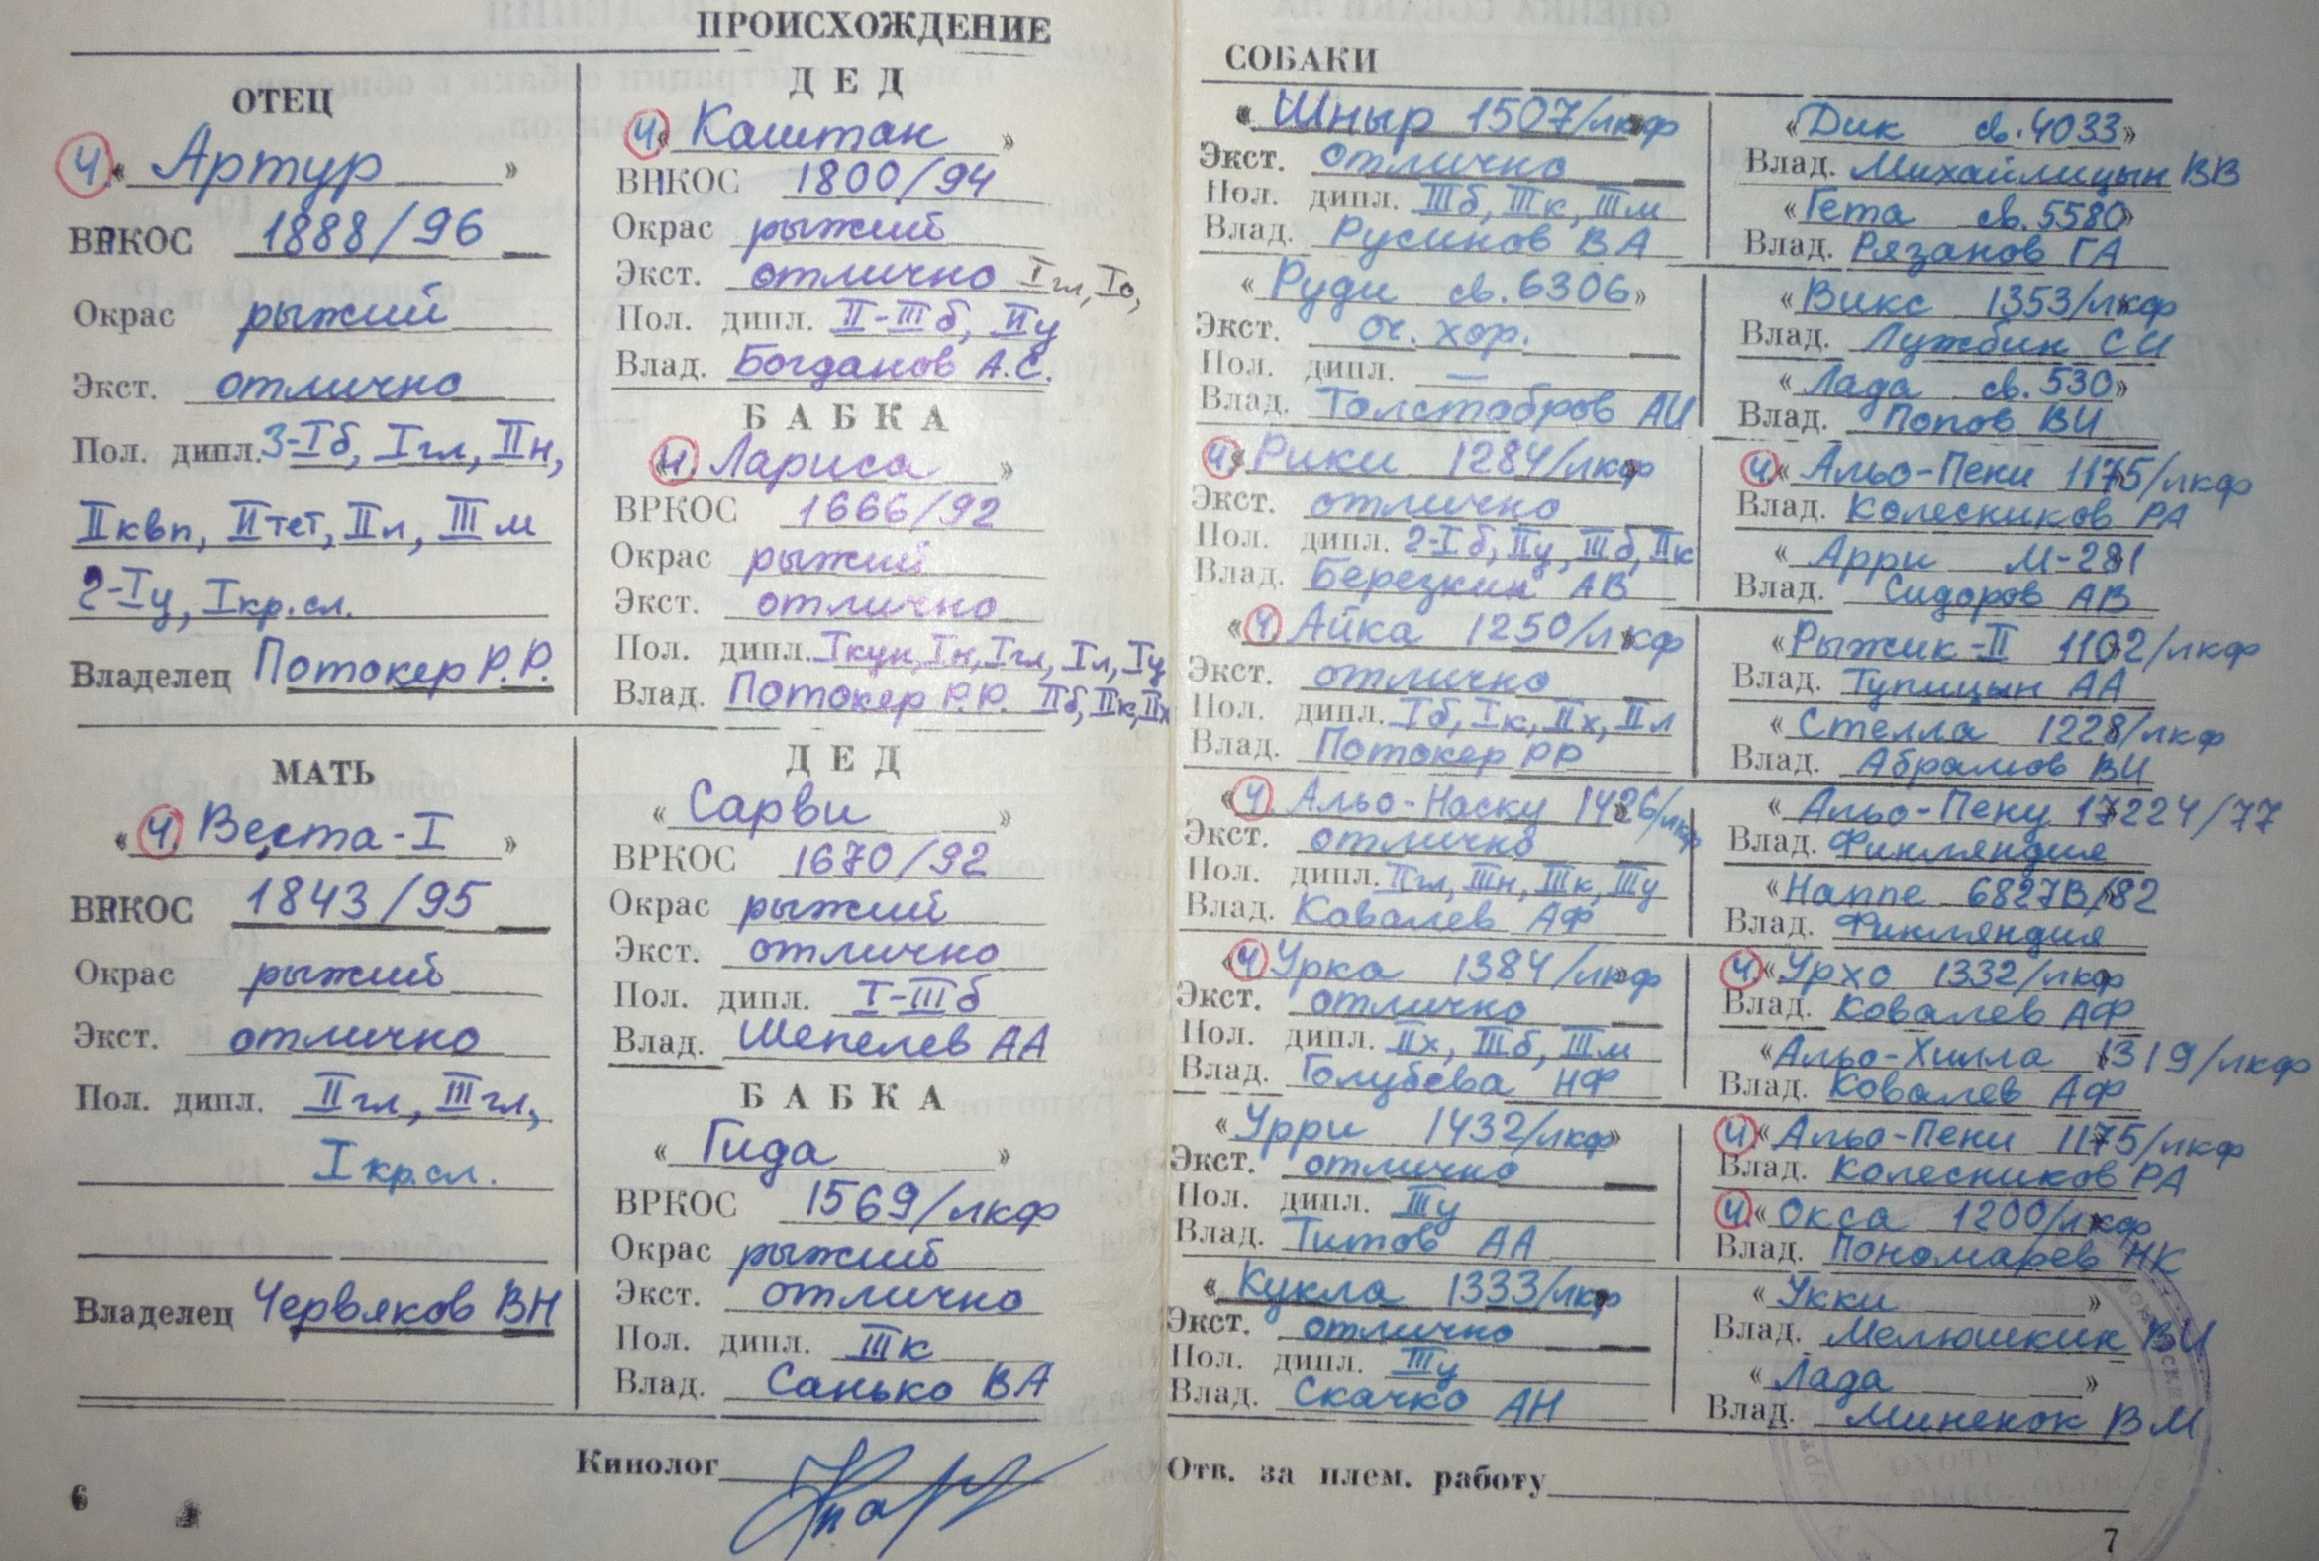 ПРОИСХОЖДЕНИЕ
ОТЕЦ
Ч. « Артур »
ВРКОС 1888/96
Окрас рыжий
Экст. отлично
Пол. дипл. 3-Iб, Iгл, IIн,
IIквп, IIтет, IIл, IIIм
2-Iу, Iкр.сл.
Владелец Потокер Р.Р.
ДЕД
Ч. « Каштан »
ВРКОС 1800/94
Окрас рыжий
Экст. отлично Iгл, Iо,
Пол. дипл. II-IIIб, IIу
Влад. Богданов А.С.
БАБКА
« Ч. Лариса »
ВРКОС 1666/92
Окрас рыжий
Экст. отлично
Пол. дипл. Iкун, Iн, Iгл, Iл, Iу
Влад. Потокер Р.Р. IIб, IIк, IIх
МАТЬ
« Ч. Веста-I »
ВРКОС 1843/95
Окрас рыжий
Экст. отлично
Пол. дипл. IIгл, IIIгл,
Iкр.сл.
Владелец Червяков ВН
ДЕД
« Сарви »
ВРКОС 1670/92
Окрас рыжий
Экст. отлично
Пол. дипл. I-IIIб
Влад. Шепелев АА
БАБКА
« Гида »
ВРКОС 1569/лкф
Окрас рыжий
Экст. отлично
Пол. дипл. IIIк
Влад. Санько ВА
Кинолог
6
СОБАКИ
« Шныр 1507/лкф
Экст. отлично
Пол. дипл. IIIб, IIIк, IIIм
Влад. Русинов ВА
« Руди св.6306»
Экст. оч. хор.
Пол. дипл. —
Влад. Толстобров АИ
Ч. « Рики 1284/лкф
Экст. отлично
Пол. дипл. 2-Iб, IIу, IIIб, IIк
Влад. Березкин АВ
« Ч. Айка 1250/лкф
Экст. отлично
Пол. дипл. Iб, Iк, IIх, IIл
Влад. Потокер РР
« Ч. Альо-Наску 1426/лкф
Экст. отлично
Пол. дипл. IIгл, IIIн, IIIк, IIIу
Влад. Ковалев АФ
« Ч. Урка 1384/лкф
Экст. отлично
Пол. дипл. IIх, IIIб, IIIм
Влад. Голубева НФ
« Урри 1432/лкф»
Экст. отлично
Пол. дипл. IIIу
Влад. Титов АА
« Кукла 1333/лкф
Экст. отлично
Пол. дипл. IIIу
Влад. Скачко АН
« Дик св.4033»
Влад. Михайлицын ВВ
« Гета св.5580»
Влад. Рязанов ГА
« Викс 1353/лкф
Влад. Лужбин СИ
« Лада св.530»
Влад. Попов ВИ
Ч. « Альо-Пени 1175/лкф
Влад. Колесников РА
« Арри М-281
Влад. Сидоров АВ
« Рыжик-II 1102/лкф
Влад. Тупицын АА
« Стелла 1228/лкф
Влад. Абрамов ВИ
« Альо-Пену 17224/77
Влад. Финляндия
« Наппе 6827В/82
Влад. Финляндия
Ч. « Урхо 1332/лкф
Влад. Ковалев АФ
« Альо-Хилла 1319/лкф
Влад. Ковалев АФ
Ч. « Альо-Пени 1175/лкф
Влад. Колесников РА
Ч. « Окса 1200/лкф
Влад. Пономарев НК
« Укки »
Влад. Мелюшкин ВИ
« Лада »
Влад. Миненок ВМ
Отв. за плем. работу
7